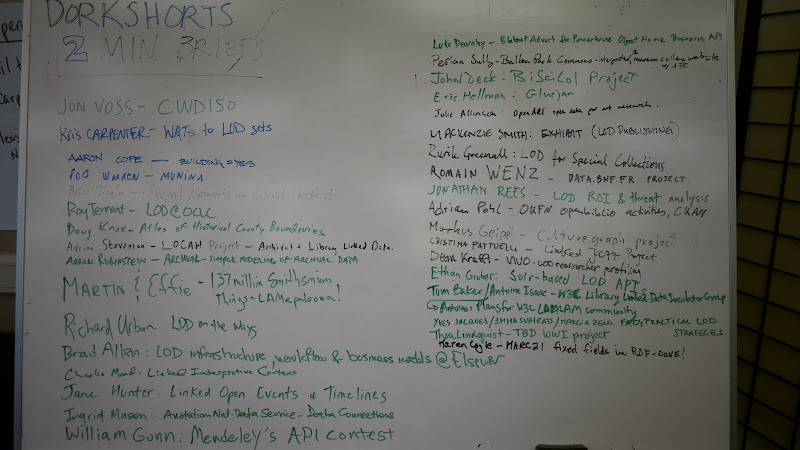 DORKSHORTS
2 MIN BRIEFS
JON VOSS - CWD150
KRIS CARPENTER - WATs to LOD sets
AARON COPE - BUILDING=YES
ROB WARREN - MUNINA
Roy Tennant - LOD@OCLC
Doug Knox - Atlas of Historical County Boundaries
Adrian Stevenson - LOCAH Project - Archival + Library Linked Data.
AARON RUBINSTEIN - ARCHUAL - SIMPLE MODELING OF ARCHIVAL DATA
MARTIN & Effie - 137 million Smithsonian
Things - LAMapalooza!
Richard Urban LOD on the
Brad Allen: LOD infrastructure, workflow & business models @ Elsevier
Charlie Mead: Linked Interpretive Content
Jane Hunter: Linked Open Events & Timelines
Ingrid Mason: Australian Nat. Data Service - Dorha Connections
William Gunn: Mendeley's API contest
Luke Dearnley - Blatant Advert for Powerhouse Object Name Thesaurus API
Perian Sully - Balboa Park Commons - integrated museum collex website
w/ API
John Deck - BiSciCol Project
Eric Hellman: Gluejar
Julie Allinson: OpenART open data for art research.
MACKENZIE SMITH: EXHIBIT (LOD PUBLISHING)
Rurik Greenall: LOD for Special Collections
ROMAIN WENZ - DATA.BNF.FR PROJECT.
JONATHAN REES - LOD ROI & threat analysis
Adrian Pohl - OKFN openbiblio activities, CKAN
Markus Geipel - Culturegraph project
CRISTINA PATTUELLI - Linked Jazz Project
Dean Krafft - VIVO - LOD researcher profiling
Ethan Gruber: Solr-based LOD API
Tom Baker/Antoine Isaac - W3C Library Linked Data Incubator Group
Antoine: Plans for W3C LODLAM community
YVES JACQUES/IMMA SUBIRATS/MARCIA ZENG. FAO'S PRACTICAL LOD
STRATEGIES.
Thea Lindquist - TBD WWI project
Karen Coyle - MARC21 fixed fields in RDF - DONE!